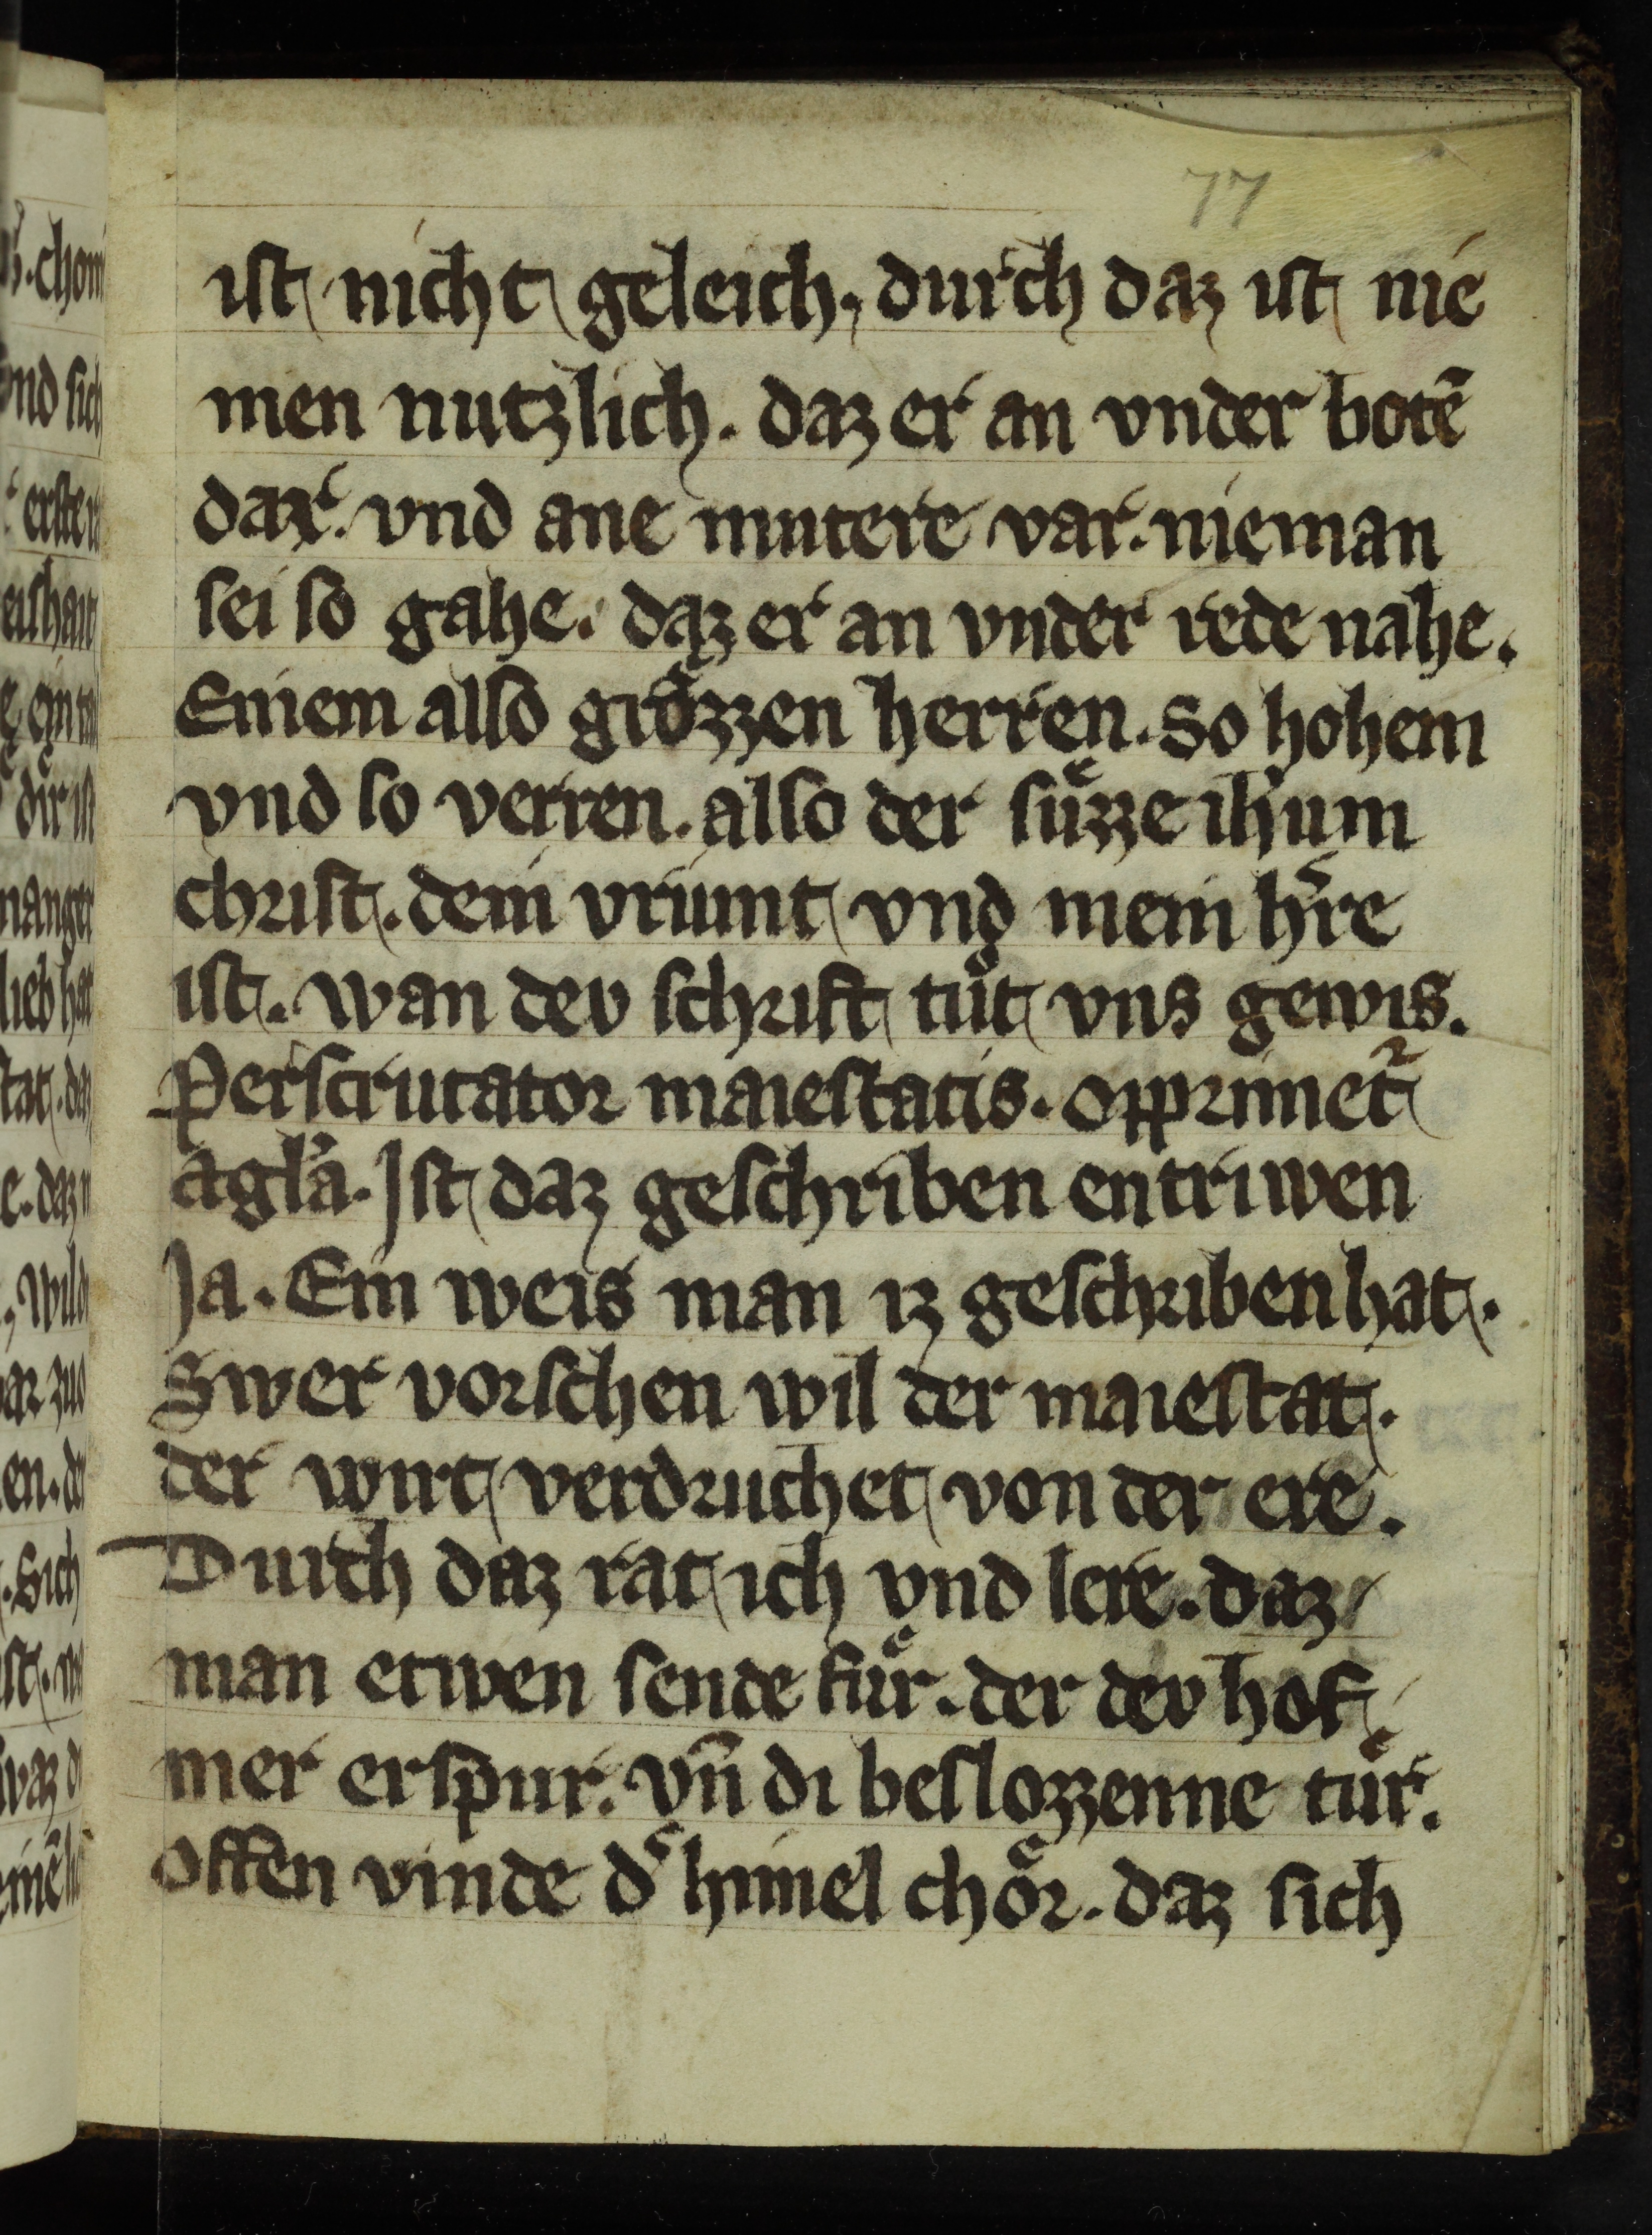 77
ist nicht geleich. durch daz ist nie
men nutzlich. daz er an vnder botē
dar. vnd ane mutere var. nieman
sei so gahe. daz er an vnder rede nahe.
Einem also groͤzzen herren. So hohem
vnd so verren. also der suͤzze ihūm
christ. dein vriunt vnd mein hr̄re
ist. wan dev schrift tuͦt vns gewis.
Perscrutator maiestatis. opprimet᷑
agl'a. Ist daz geschriben entriwen
Ja. Ein weis man iz geschriben hat.
Swer vorschen wil der maiestat.
der wirt verdruchet von der ere.
Durch daz rat ich vnd lere. daz
man etwen sende fuͤr. der dev hof
mer erspur. vn̄ di beslozzenne tuͤr.
offen vinde d' himel choͤr. daz sich